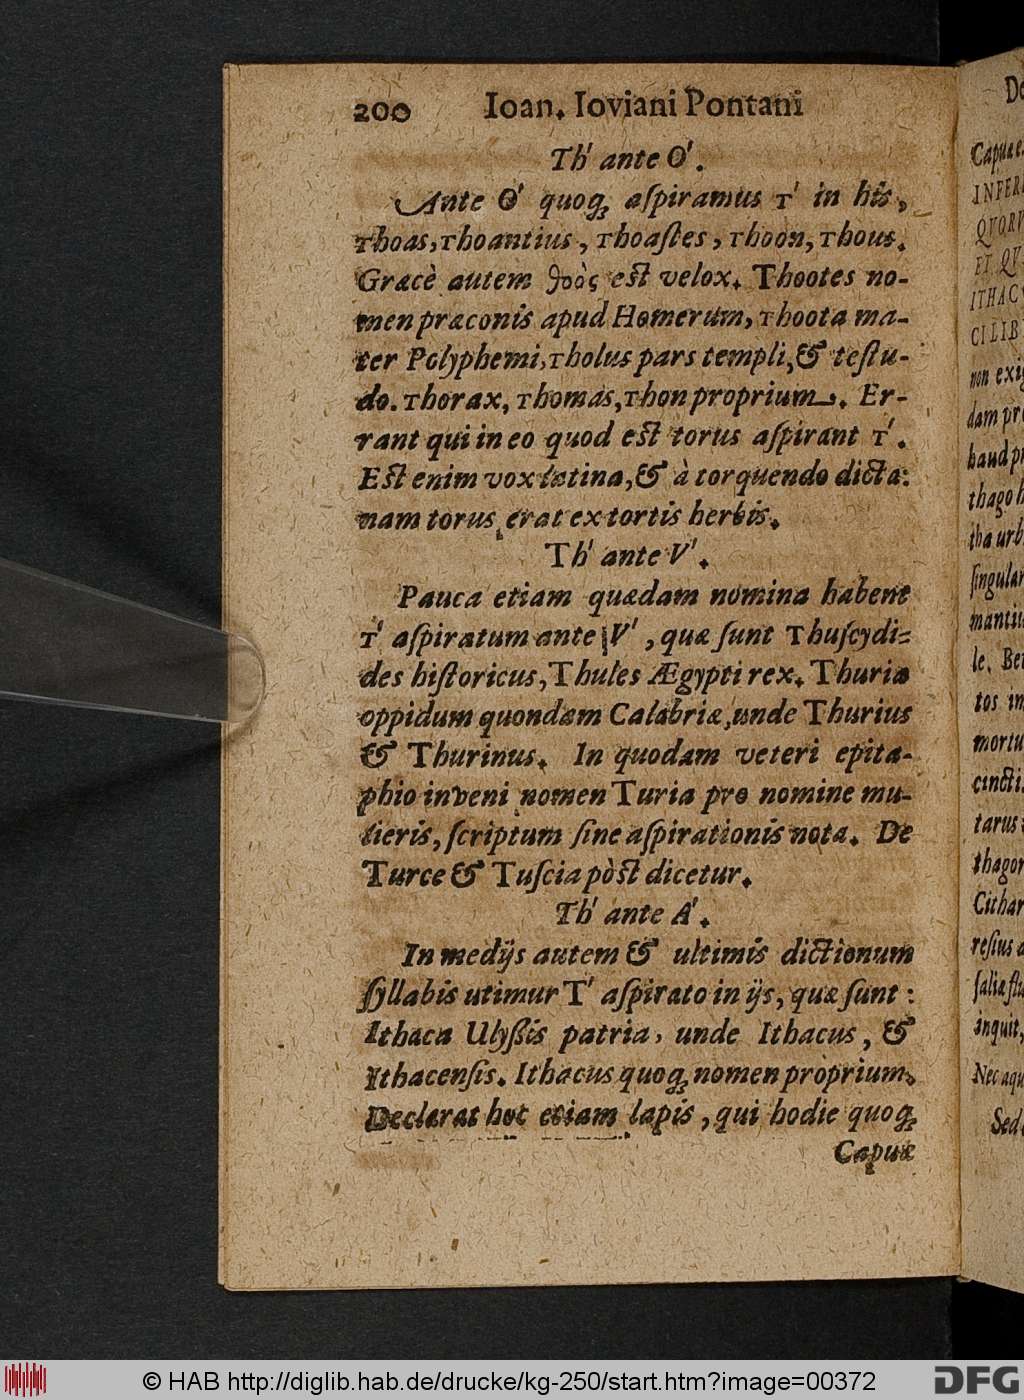 200 Ioan. Ioviani Pontani
Th' ante O'.
Ante O' quoq; aſpiramus T' in his,
Thoas, Thoantius, Thoaſtes, Thoon, Thous.
Græcè autem θοὸς eſt velox. Thootes no-
men præconis apud Homerum, Thoota ma-
ter Polyphemi, Tholus pars templi, & teſtu-
do. Thorax, Thomas, Thon proprium. Er-
rant qui in eo quod eſt torus aſpirant T'.
Eſt enim vox latina, & à torquendo dicta:
nam torus erat ex tortis herbis.
Th' ante V'.
Pauca etiam quædam nomina habent
T' aſpiratum ante V', quæ ſunt Thuſcydi-
des hiſtoricus, Thules Ægypti rex. Thuriæ
oppidum quondam Calabriæ, unde Thurius
& Thurinus. In quodam veteri epita-
phio inveni nomen Turia pro nomine mu-
lieris, ſcriptum ſine aſpirationis nota. De
Turce & Tuſcia pòſt dicetur.
Th' ante A'.
In medijs autem & ultimis dictionum
ſyllabis utimur T' aſpirato in ijs, quæ ſunt:
Ithaca Ulyßis patria, unde Ithacus, &
Ithacenſis. Ithacus quoq; nomen proprium.
Declarat hoc etiam lapis, qui hodie quoq;
Capuæ
De
Capuæ
INFER
QVORV
ET QV
ITHACV
CILIB
non exig
dam pro
haud pr
thago h
tha urb
ſingular
mantiu
le. Bet
tos in
mortu
cincti
tarus
thagor
Cithar
reſius
ſaliæ flu
inquit,
Nec aqu
Sed
© HAB http://diglib.hab.de/drucke/kg-250/start.htm?image=00372
DFG